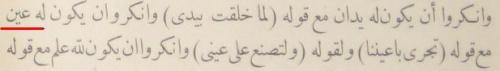 وانكروا أن يكون له يدان مع قوله (لما خلقت بيدى) وانكروا ان يكون له عين
مع قوله (تجرى باعيننا) ولقوله (ولتصنع على عينى) وانكروا ان يكون لله علم مع قوله